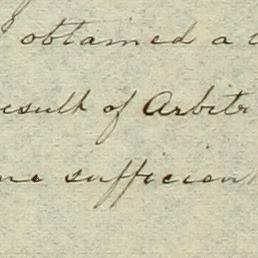 obtained a
result of Arbitr
sufficient